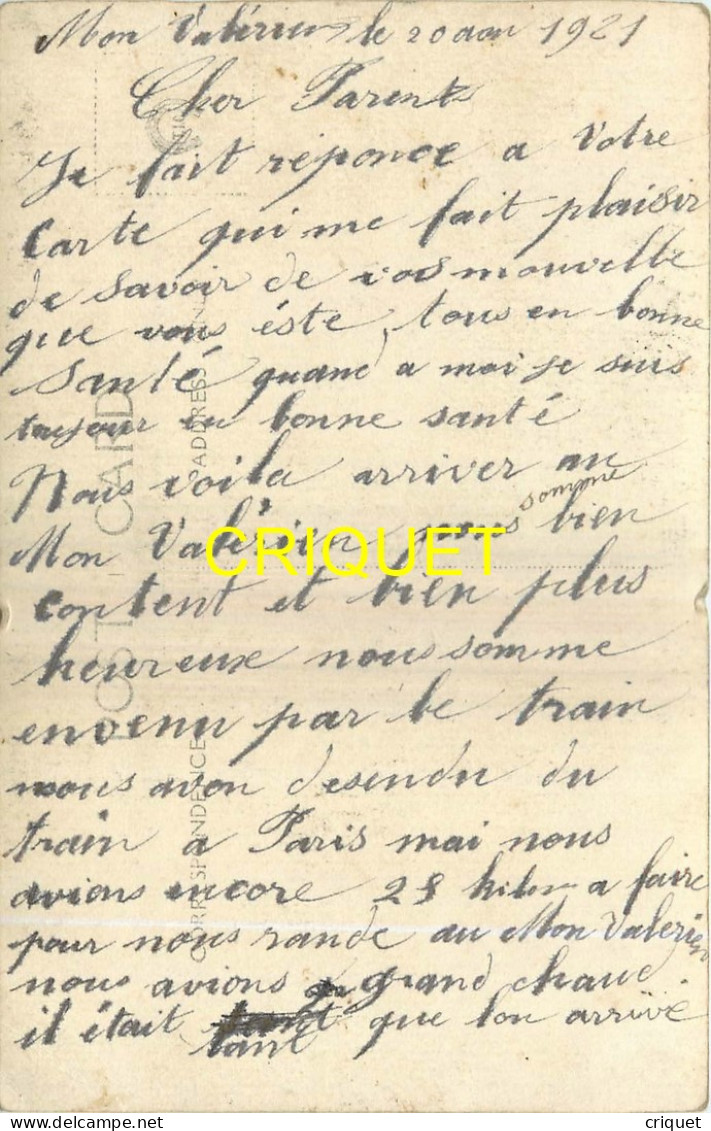 Mon Valérien le 20 aou 1921
Cher Parents
Je fait réponce a Votre
Carte qui me fait plaisir
de savoir de vos nouvelle
que vous éste tous en bonne
Santé quand a moi je suis
toujour en bonne santé
Nous voila arriver au
Mon Valérien nous somme bien
content et bien plus
heureux nous somme
envenu par le train
nous avon desendu du
train a Paris mai nous
avions encore 28 kilom a faire
pour nous rande au Mon Valerien
nous avions grand chaud
il était tant que lon arrive
POST CARD
CORRESPONDENCE
ADDRESS
CRIQUET
criquet